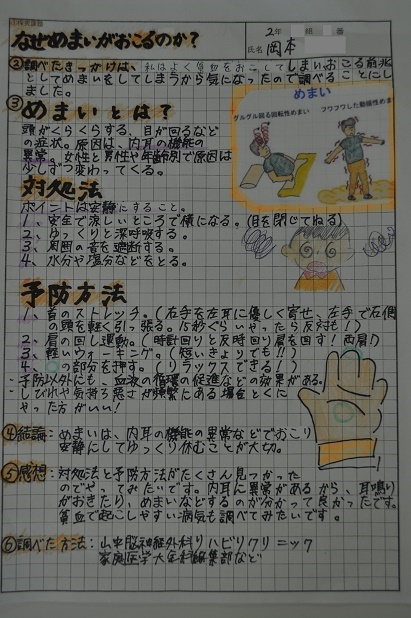 ①探究課題
なぜめまいがおこるのか?
2年 組 番
氏名 岡本
②調べたきっかけは、私はよく貧血をおこしてしまい、おこる前兆
としてめまいをしてしまうから気になったので調べることにし
ました。
③めまいとは?
頭がくらくらする、目が回るなど
の症状。原因は、内耳の機能の
異常。女性と男性や年齢別で原因は
少しずつ変わってくる。
めまい
グルグル回る回転性めまい
フワフワした動揺性めまい
対処法
ポイントは安静にすること。
1、安全で涼しいところで横になる。(目を閉じてねる)
2、ゆっくりと深呼吸する。
3、周囲の音を遮断する。
4、水分や塩分などをとる。
予防方法
1、首のストレッチ。(右手を左耳に優しく寄せ、左手で右側
の頭を軽く引っ張る。15秒ぐらいやったら反対も!)
2、肩の回し運動。(時計回りと反時計回り肩を回す!両肩!)
3、軽いウォーキング。(短いきょりでも!!)
4、○の部分を押す。(リラックスできる!)
・予防以外にも、血液の循環の促進などの効果がある。
・しびれや気持ち悪さが頻繁にある場合とくに
やった方がいい!
④結論:めまいは、内耳の機能の異常などでおこり
安静にしてゆっくり休むことが大切。
⑤感想:対処法と予防方法がたくさん見つかった
のでやってみたいです。内耳に異常があるから、耳鳴り
がおきたり、めまいなどするのが分かって良かったです。
貧血で起こしやすい病気も調べてみたいです。
⑥調べた方法:山中脳神経外科リハビリクリニック
家庭医学大全科編集部など